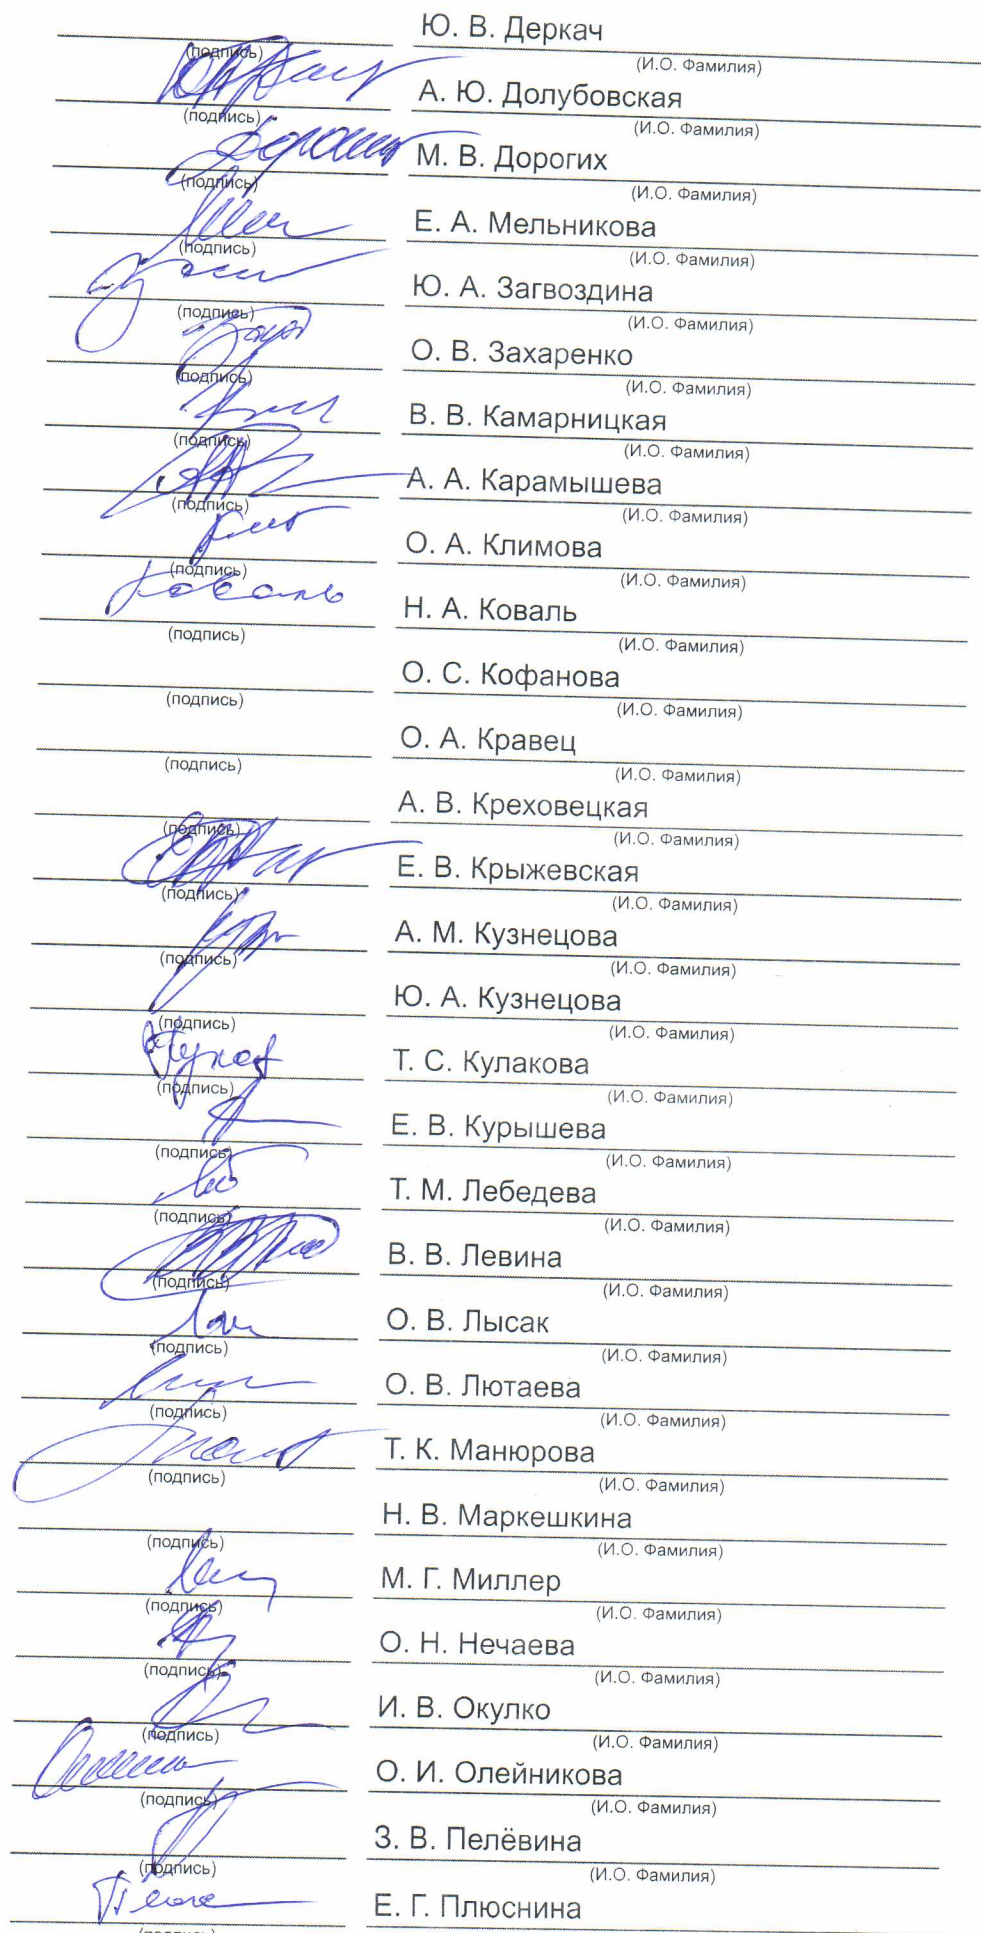 Ю. В. Деркач
(подпись) (И.О. Фамилия)
А. Ю. Долубовская
(подпись) (И.О. Фамилия)
М. В. Дорогих
(подпись) (И.О. Фамилия)
Е. А. Мельникова
(подпись) (И.О. Фамилия)
Ю. А. Загвоздина
(подпись) (И.О. Фамилия)
О. В. Захаренко
(подпись) (И.О. Фамилия)
В. В. Камарницкая
(подпись) (И.О. Фамилия)
А. А. Карамышева
(подпись) (И.О. Фамилия)
О. А. Климова
(подпись) (И.О. Фамилия)
Коваль Н. А. Коваль
(подпись) (И.О. Фамилия)
О. С. Кофанова
(подпись) (И.О. Фамилия)
О. А. Кравец
(подпись) (И.О. Фамилия)
А. В. Креховецкая
(подпись) (И.О. Фамилия)
Е. В. Крыжевская
(подпись) (И.О. Фамилия)
А. М. Кузнецова
(подпись) (И.О. Фамилия)
Ю. А. Кузнецова
(подпись) (И.О. Фамилия)
Т. С. Кулакова
(подпись) (И.О. Фамилия)
Е. В. Курышева
(подпись) (И.О. Фамилия)
Т. М. Лебедева
(подпись) (И.О. Фамилия)
В. В. Левина
(подпись) (И.О. Фамилия)
О. В. Лысак
(подпись) (И.О. Фамилия)
О. В. Лютаева
(подпись) (И.О. Фамилия)
Т. К. Манюрова
(подпись) (И.О. Фамилия)
Н. В. Маркешкина
(подпись) (И.О. Фамилия)
М. Г. Миллер
(подпись) (И.О. Фамилия)
О. Н. Нечаева
(подпись) (И.О. Фамилия)
И. В. Окулко
(подпись) (И.О. Фамилия)
О. И. Олейникова
(подпись) (И.О. Фамилия)
З. В. Пелёвина
(подпись) (И.О. Фамилия)
Е. Г. Плюснина